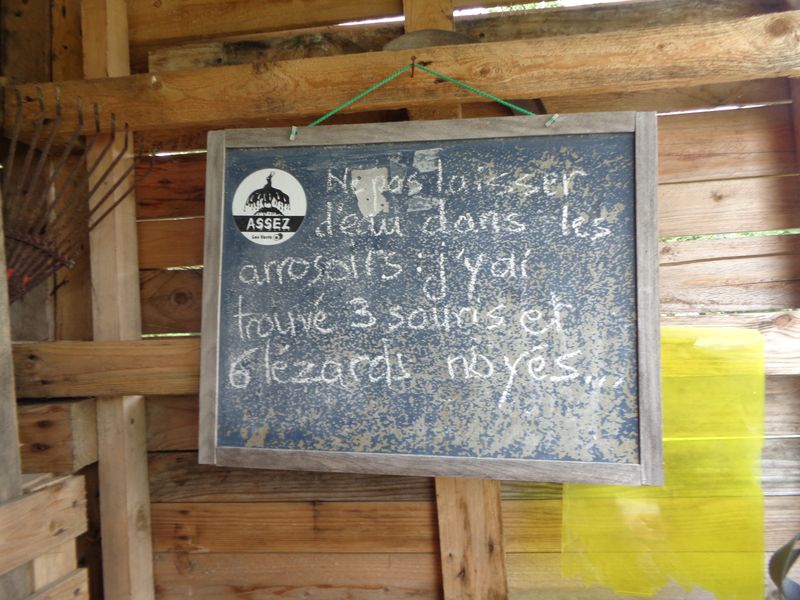 ASSEZ
Les Verts
Ne pas laisser
d'eau dans les
arrosoirs : j'y ai
trouvé 3 souris et
6 lézards noyés...